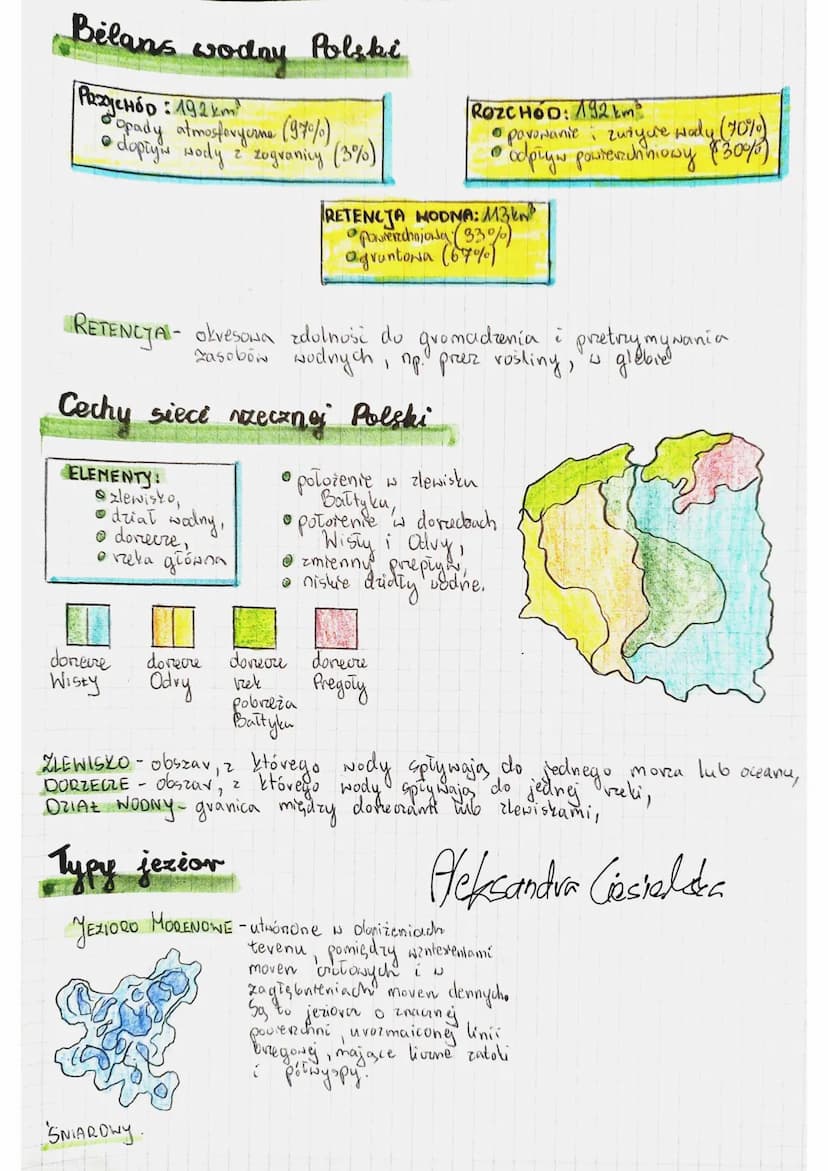 Bilans wodny Polski
PRZYCHÓD: 192km³
opady atmosferyczne (97%)
dopływ wody z zagranicy (3%)
ROZCHÓD: 192km³
parowanie i zużycie wody (70%)
odpływ powierzchniowy (30%)
RETENCJA WODNA: 113km³
powierzchniowa (33%)
gruntowa (67%)
RETENCJA - okresowa zdolność do gromadzenia i przetrzymywania
zasobów wodnych, np. przez rośliny, w glebie
Cechy sieci rzecznej Polski
ELEMENTY:
zlewisko,
dział wodny,
dorzecze,
rzeka główna
położenie w zlewisku
Bałtyku,
położenie w dorzeczach
Wisły i Odry,
zmienny przepływ,
niskie działy wodne.
dorzecze
Wisły
dorzecze
Odry
dorzecze
rzek
pobrzeża
Bałtyku
dorzecze
Pregoły
ZLEWISKO - obszar, z którego wody spływają do jednego morza lub oceanu,
DORZECZE - obszar, z którego wody spływają do jednej rzeki,
DZIAŁ WODNY - granica między dorzeczami lub zlewiskami,
Typy jezior
Aleksandra Ciesielska
JEZIORO MORENOWE - utworzone w obniżeniach
terenu, pomiędzy wzniesieniami
moren czołowych i w
zagłębieniach moren dennych.
Są to jeziora o znacznej
powierzchni, urozmaiconej linii
brzegowej, mające liczne zatoki
i półwyspy.
ŚNIARDWY.